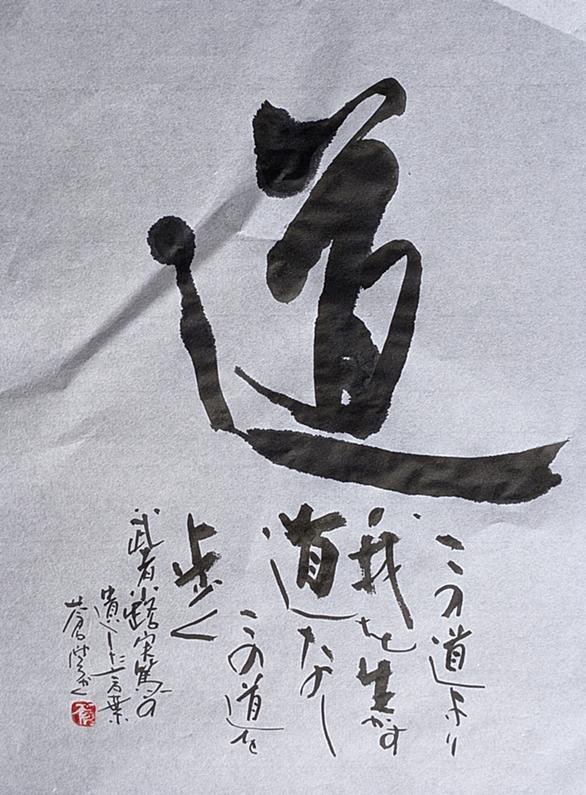 道
この道より
我を生かす
道なし
この道を
歩く
武者小路実篤の
遺した言葉